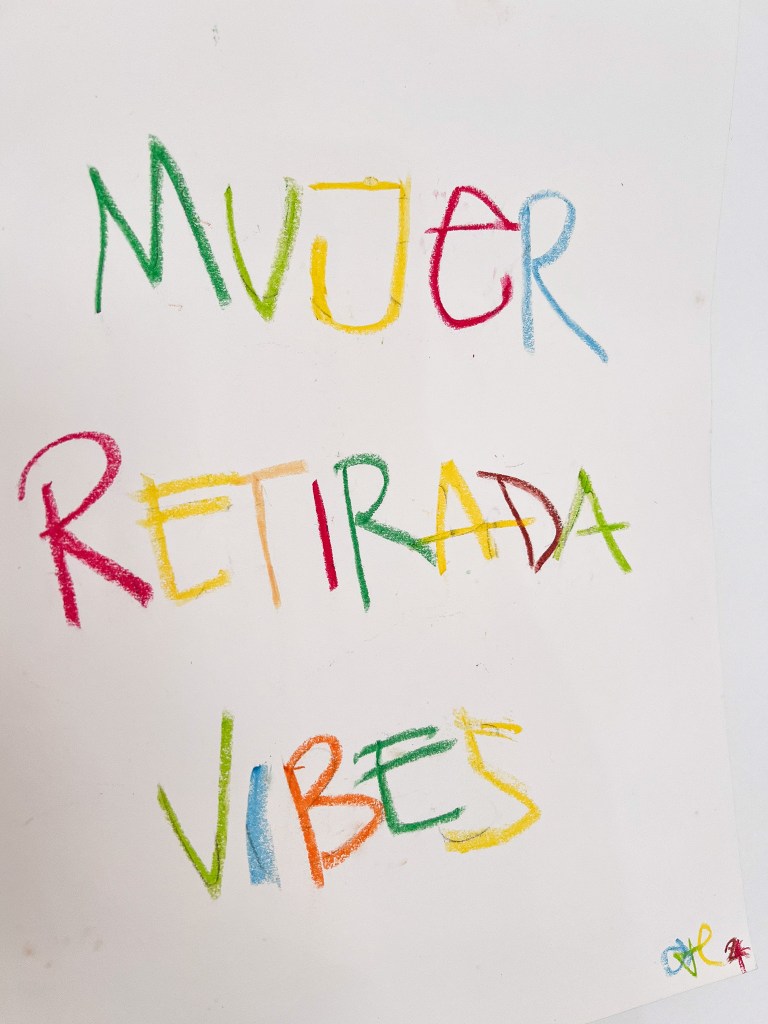 MUJER
RETIRADA
VIBES